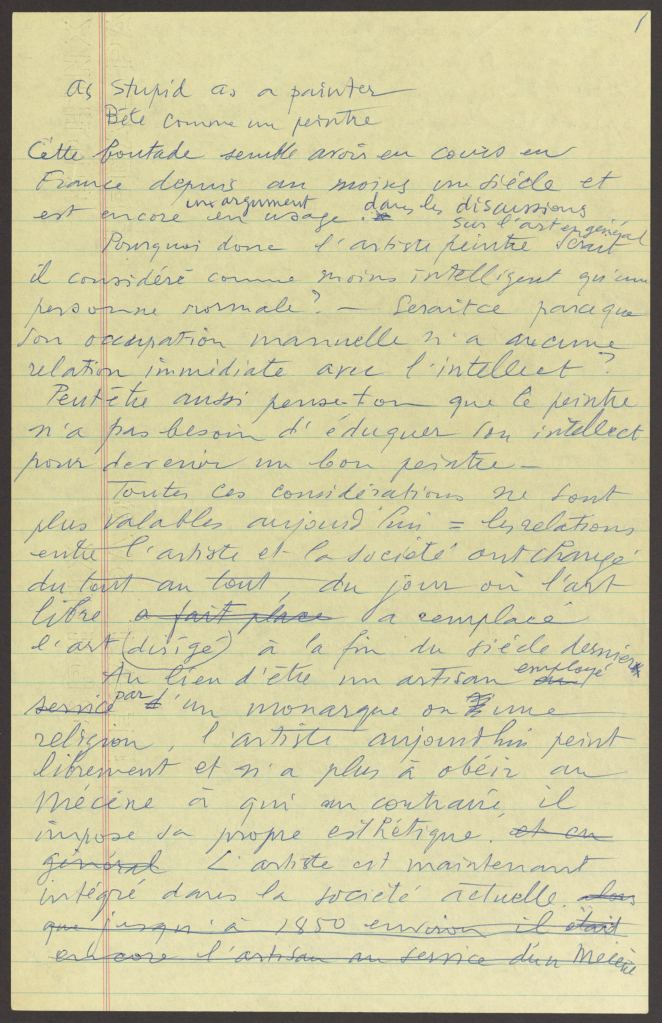 1
as stupid as a painter
Bête comme un peintre
Cette boutade semble avoir en cours en
France depuis au moins un siècle et
est encore en usage. un argument dans les discussions
sur l'art en général
Pourquoi donc l'artiste peintre serait
il considéré comme moins intelligent qu'une
personne normale? — Serait ce parce que
son occupation manuelle n'a aucune
relation immédiate avec l'intellect?
Peut être aussi pense-t-on que le peintre
n'a pas besoin d'éduquer son intellect
pour devenir un bon peintre —
Toutes ces considérations ne sont
plus valables aujourd'hui = les relations
entre l'artiste et la société ont changé
du tout au tout, du jour où l'art
libre a fait place a remplacé
l'art (dirigé) à la fin du siècle dernier
Au lieu d'être un artisan employé au
service par d'un monarque ou d'une
religion, l'artiste aujourd'hui peint
librement et n'a plus à obéir au
Mécène à qui au contraire, il
impose sa propre esthétique. et en
général L'artiste est maintenant
intégré dans la société actuelle. alors
que jusqu'à 1850 environ il était
encore l'artisan au service d'un Mécène